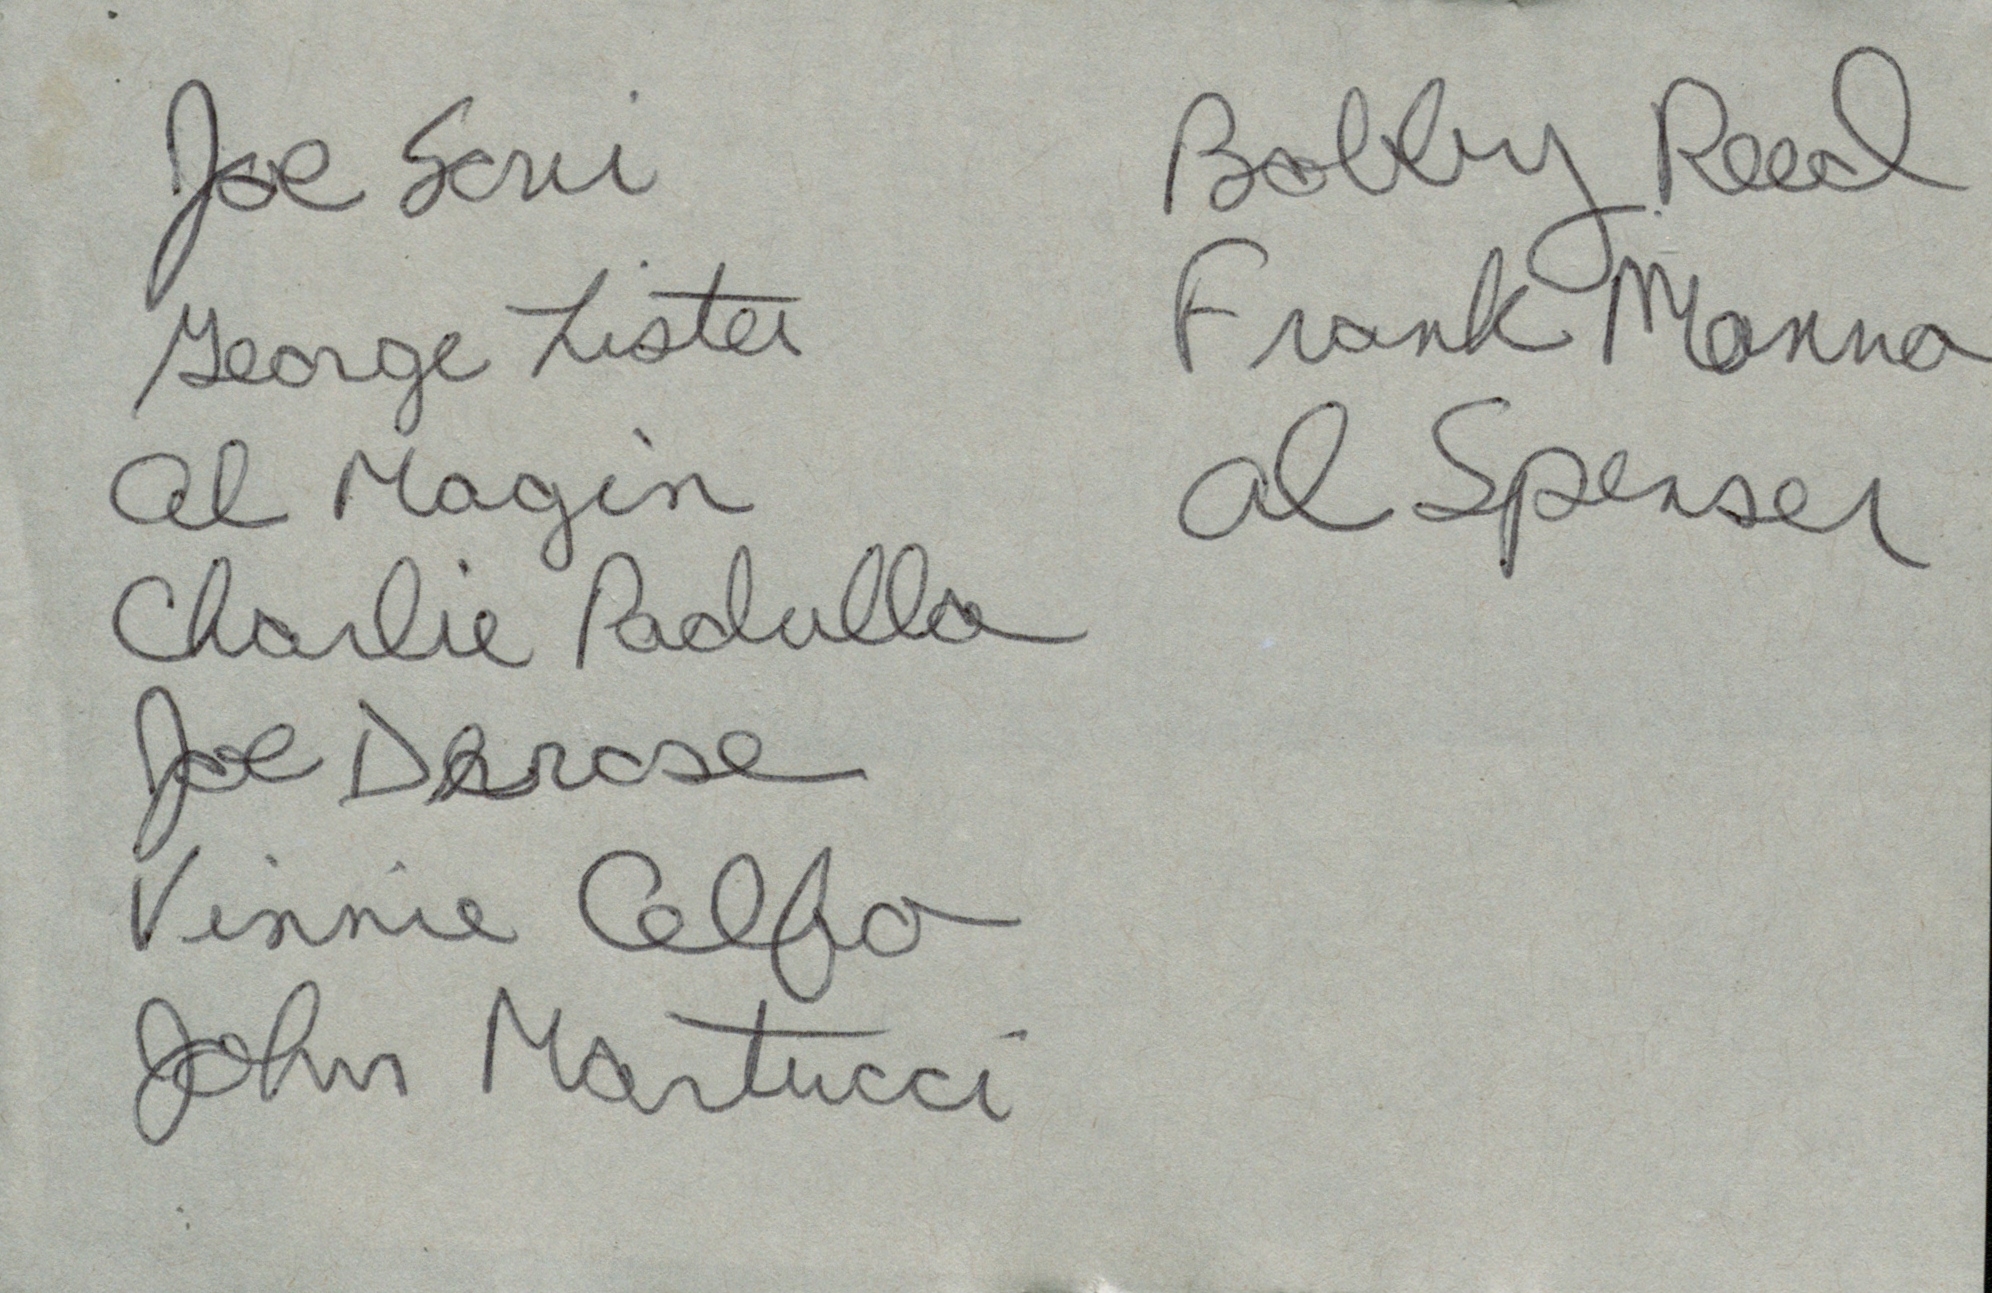 Joe Scrui
George Lister
Al Magin
Charlie Padulla
Joe Derose
Vinnie Calfo
John Martucci
Bobby Reed
Frank Manna
Al Spenser